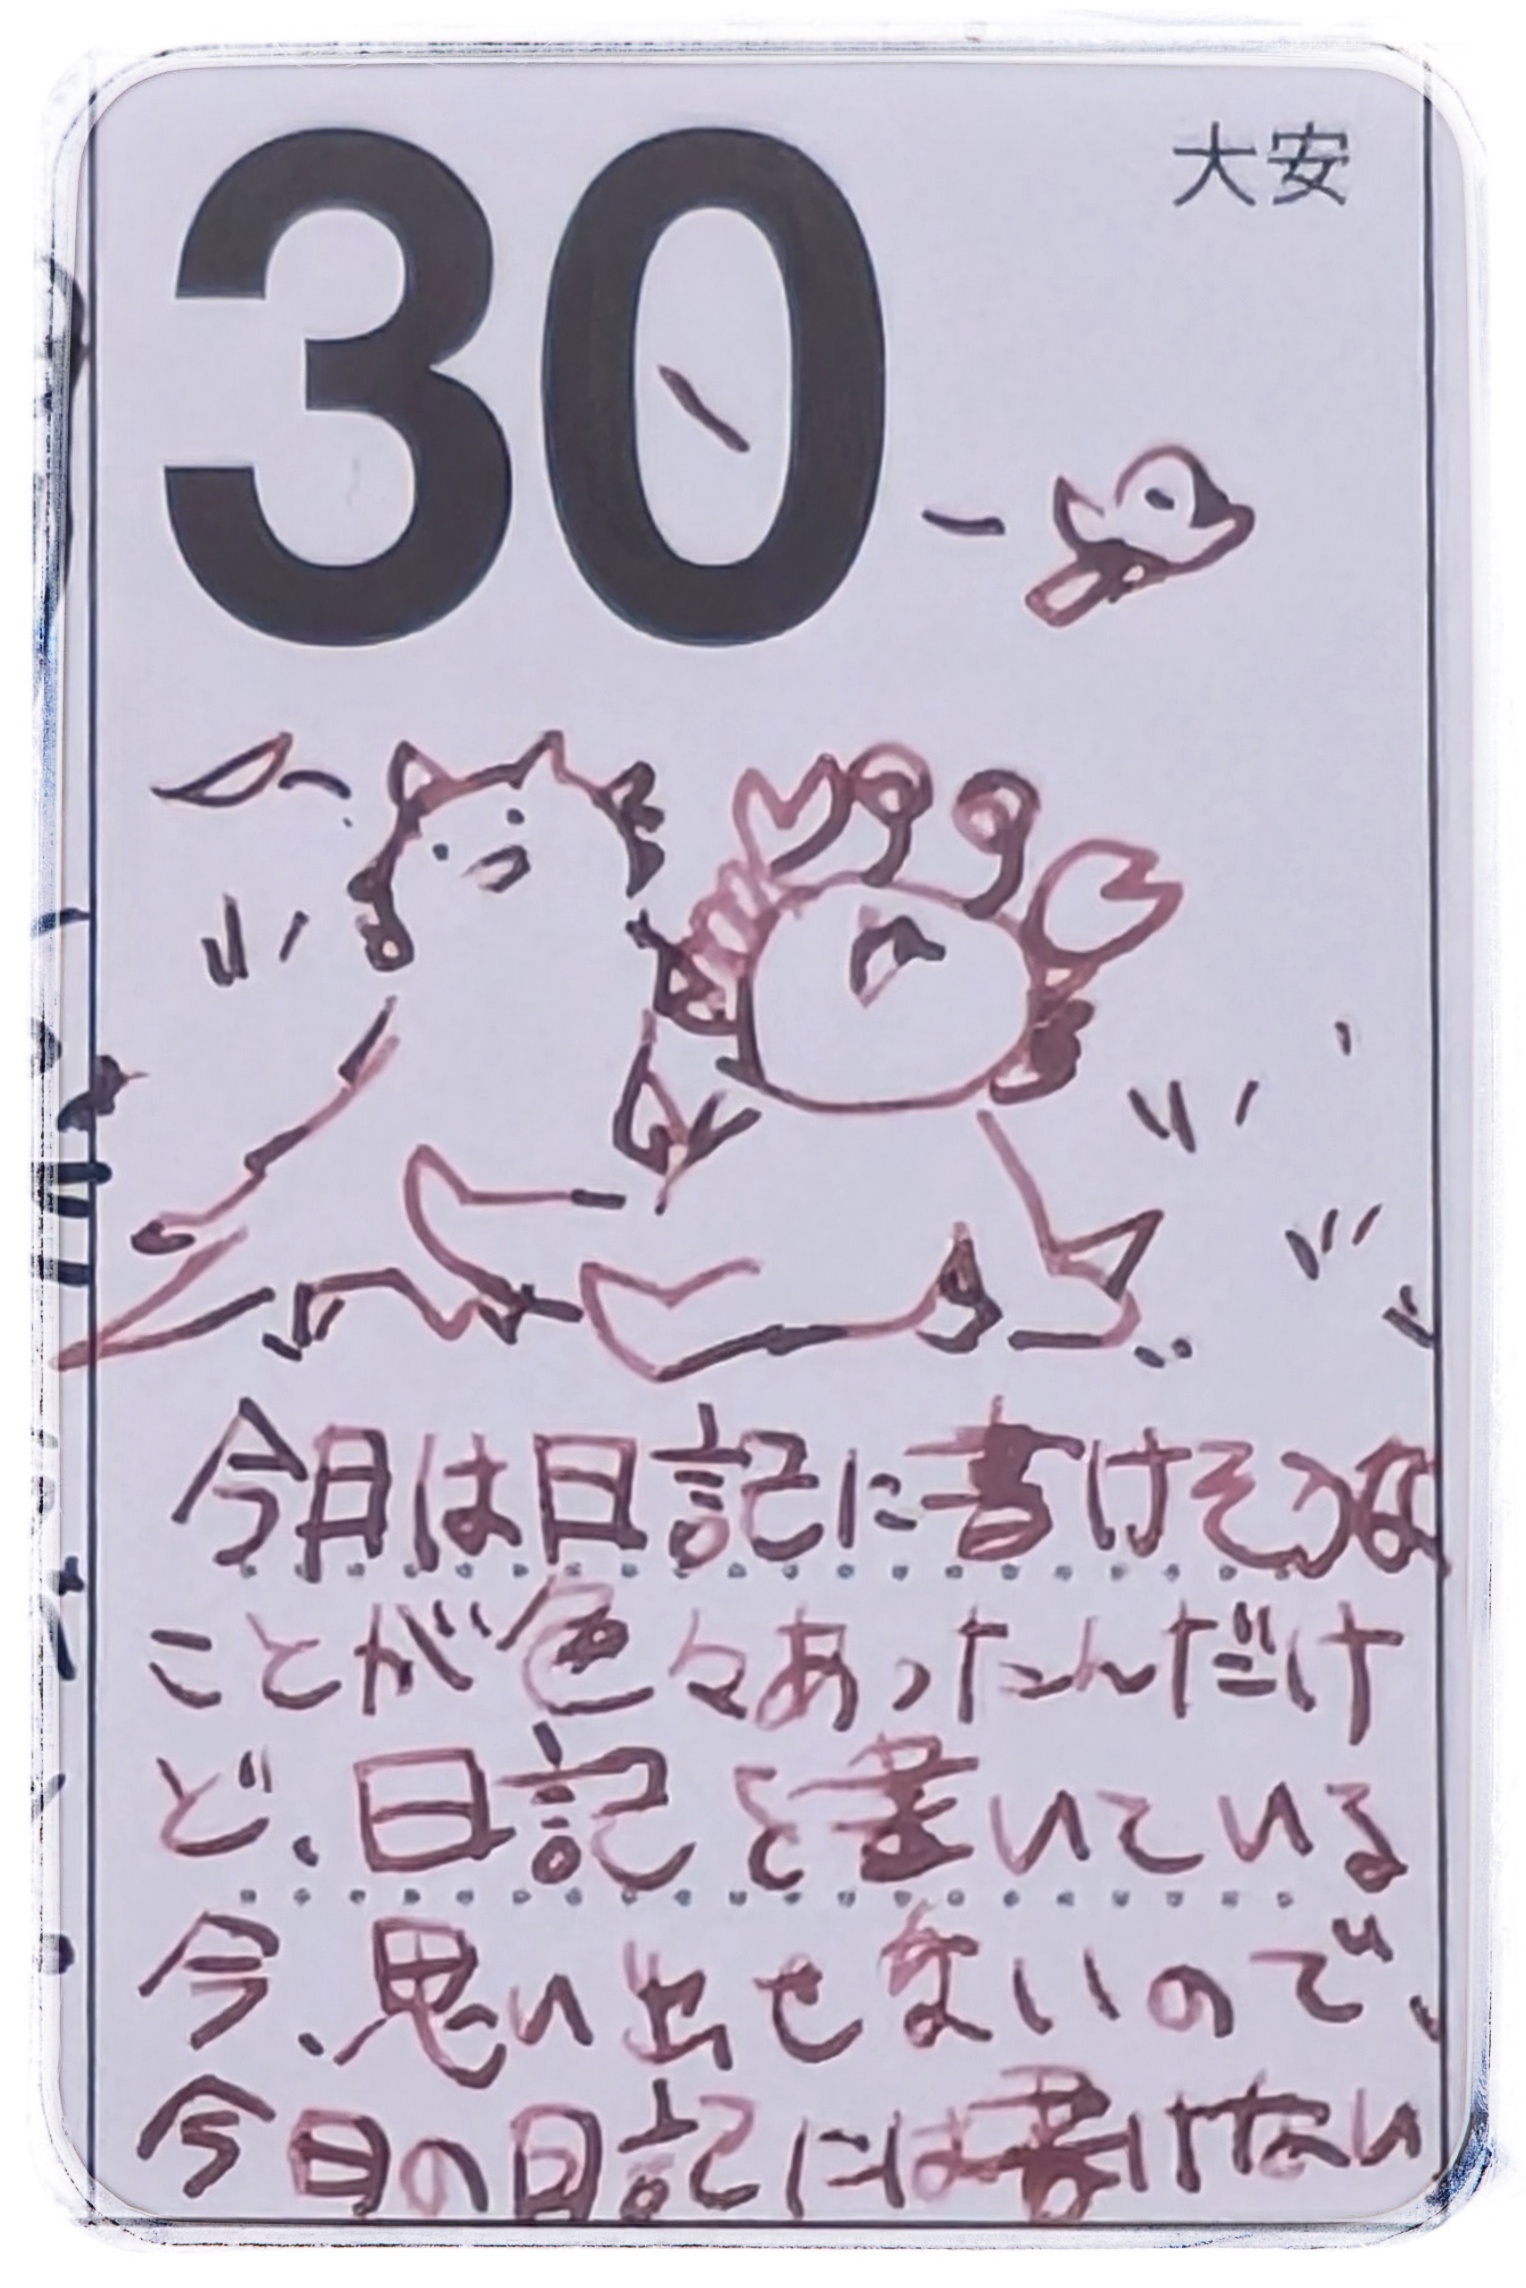 30
大安
今日は日記に書けそうな
ことが色々あったんだけ
ど、日記を書いている
今、思い出せないので、
今日の日記には書けない